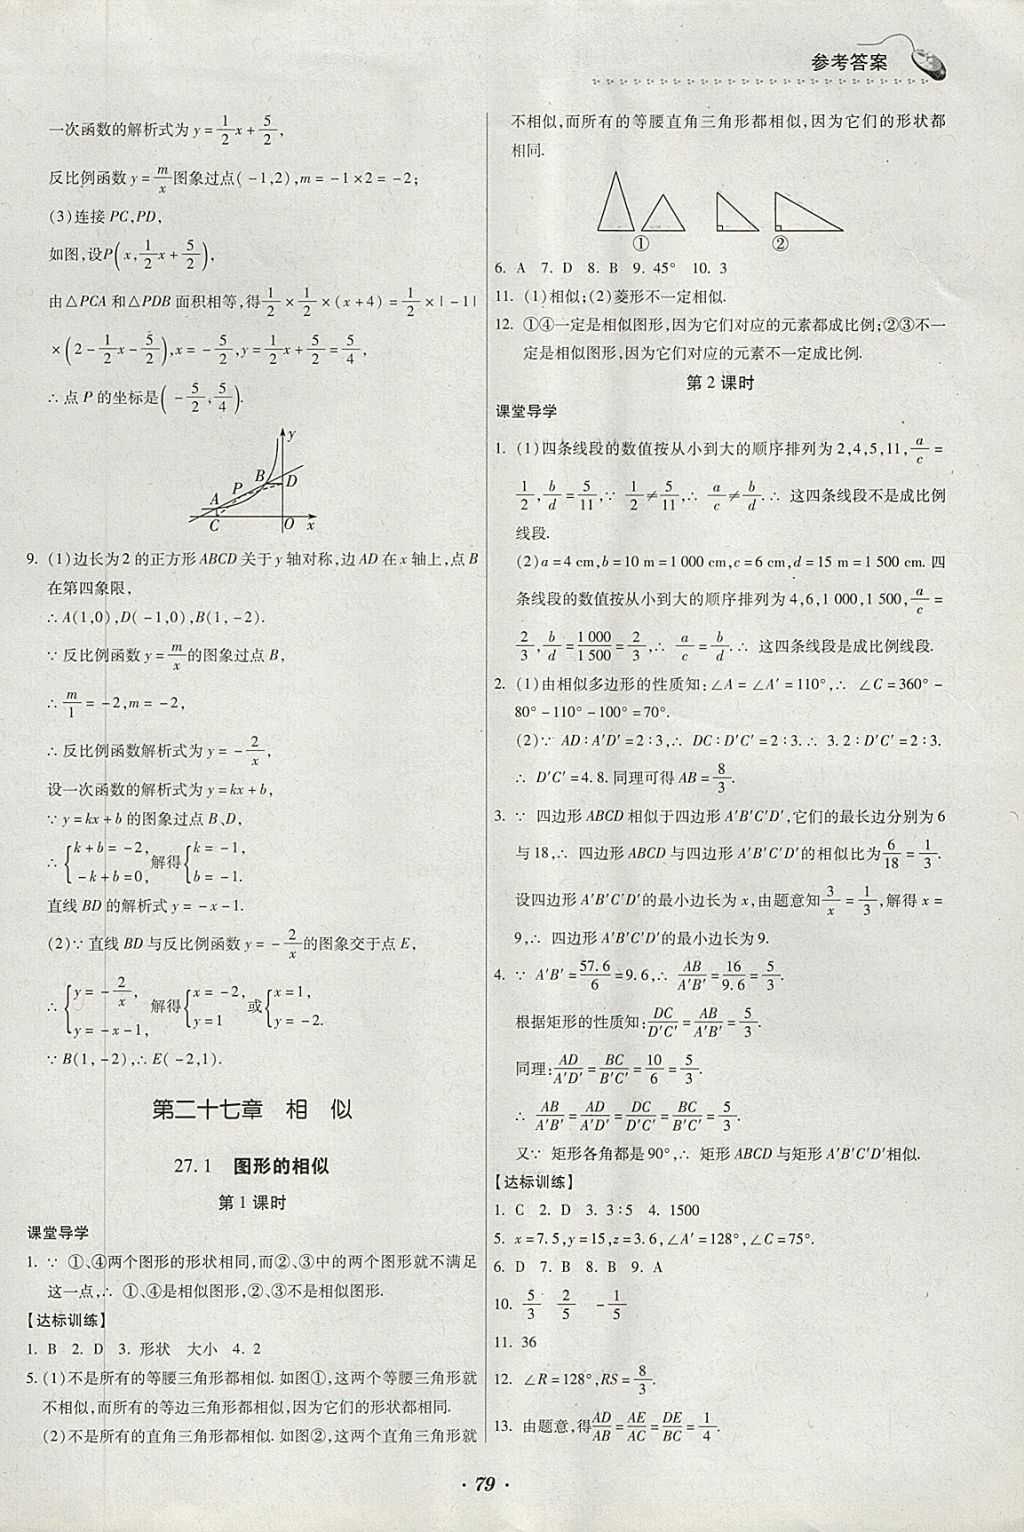 参考答案
一次函数的解析式为 y=1/2x+5/2,
反比例函数 y=m/x图象过点(-1,2),m=-1×2=-2;
(3)连接 PC,PD,
如图,设P(x,1/2x+5/2),
由△PCA 和△PDB 面积相等,得1/2×1/2×(x+4)=1/2×|-1|
×(2-1/2x-5/2),x=-5/2,y=1/2x+5/2=5/4,
∴点 P 的坐标是(-5/2,5/4).
y
B
P
D
A
C
O
x
9. (1)边长为2 的正方形 ABCD 关于 y 轴对称,边 AD 在 x 轴上,点 B
在第四象限,
∴A(1,0),D(-1,0),B(1,-2).
∵反比例函数 y=m/x的图象过点 B,
∴m/1=-2,m=-2,
∴反比例函数解析式为 y=-2/x,
设一次函数的解析式为 y=kx+b,
∵y=kx+b 的图象过点 B、D,
∴{k+b=-2, -k+b=0, 解得{k=-1, b=-1.
直线 BD 的解析式 y=-x-1.
(2)∵直线 BD 与反比例函数 y=-2/x的图象交于点 E,
∴{y=-2/x, y=-x-1, 解得{x=-2, y=1 或{x=1, y=-2.
∵B(1,-2),∴E(-2,1).
第二十七章 相 似
27.1 图形的相似
第 1 课时
课堂导学
1. ∵ ①、④两个图形的形状相同,而②、③中的两个图形就不满足
这一点,∴ ①、④是相似图形,②、③不是相似图形.
【达标训练】
1. B 2. D 3. 形状 大小 4. 2
5. (1)不是所有的等腰三角形都相似. 如图①,这两个等腰三角形就
不相似,而所有的等边三角形都相似,因为它们的形状都相同.
(2)不是所有的直角三角形都相似. 如图②,这两个直角三角形就
不相似,而所有的等腰直角三角形都相似,因为它们的形状都
相同.
① ②
6. A 7. D 8. B 9. 45° 10. 3
11. (1)相似;(2)菱形不一定相似.
12. ①④一定是相似图形,因为它们对应的元素都成比例;②③不一
定是相似图形,因为它们对应的元素不一定成比例.
第 2 课时
课堂导学
1. (1)四条线段的数值按从小到大的顺序排列为 2,4,5,11,a/c=
1/2,b/d=5/11,∵ 1/2≠5/11,∴ a/c≠b/d.∴ 这四条线段不是成比例
线段.
(2)a=4 cm,b=10 m=1 000 cm,c=6 cm,d=15 m=1 500 cm. 四
条线段的数值按从小到大的顺序排列为 4,6,1 000,1 500,a/c=
2/3,b/d=1 000/1 500=2/3,∴ a/c=b/d.∴ 这四条线段是成比例线段.
2. (1)由相似多边形的性质知:∠A=∠A′=110°,∴ ∠C=360°-
80°-110°-100°=70°.
(2)∵ AD∶A′D′=2∶3,∴ DC∶D′C′=2∶3.∴ 3.2∶D′C′=2∶3.
∴ D′C′=4.8. 同理可得 AB=8/3.
3. ∵ 四边形 ABCD 相似于四边形 A′B′C′D′,它们的最长边分别为 6
与 18,∴ 四边形 ABCD 与四边形 A′B′C′D′的相似比为6/18=1/3.
设四边形 A′B′C′D′的最小边长为 x,由题意知3/x=1/3,解得 x=
9,∴ 四边形 A′B′C′D′的最小边长为 9.
4. ∵ A′B′=57.6/6=9.6,∴ AB/A′B′=16/9.6=5/3.
根据矩形的性质知:DC/D′C′=AB/A′B′=5/3.
同理:AD/A′D′=BC/B′C′=10/6=5/3.
∴ AB/A′B′=AD/A′D′=DC/D′C′=BC/B′C′=5/3.
又∵ 矩形各角都是 90°,∴ 矩形 ABCD 与矩形 A′B′C′D′相似.
【达标训练】
1. C 2. D 3. 3∶5 4. 1500
5. x=7.5,y=15,z=3.6,∠A′=128°,∠C=75°.
6. D 7. B 8. B 9. A
10. 5/3 2/5 -1/5
11. 36
12. ∠R=128°,RS=8/3.
13. 由题意,得AD/AB=AE/AC=DE/BC=1/4.
· 79 ·